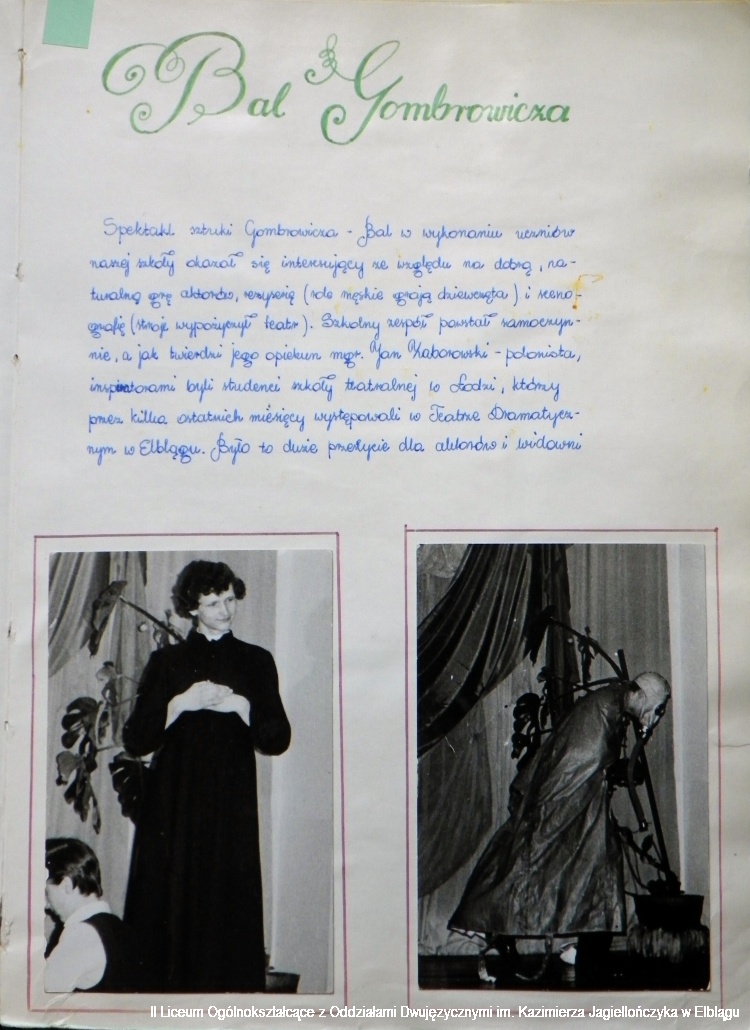 Bal Gombrowicza
Spektakl sztuki Gombrowicza - Bal w wykonaniu uczniów
naszej szkoły okazał się interesujący ze względu na dobrą, na-
turalną grę aktorów, reżyserię (role męskie grają dziewczęta) i sceno-
grafię (stroje wypożyczył teatr). Szkolny zespół powstał samoczyn-
nie, a jak twierdzi jego opiekun mgr. Jan Zaborowski - polonista,
inspiratorami byli studenci szkoły teatralnej w Łodzi, którzy
przez kilka ostatnich miesięcy występowali w Teatrze Dramatycz-
nym w Elblągu. Było to duże przeżycie dla aktorów i widowni
II Liceum Ogólnokształcące z Oddziałami Dwujęzycznymi im. Kazimierza Jagiellończyka w Elblągu